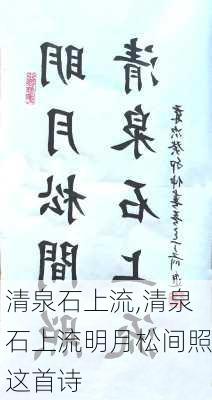 明月松間照
清泉石上流
清泉石上流,清泉
石上流明月松间照
这首诗